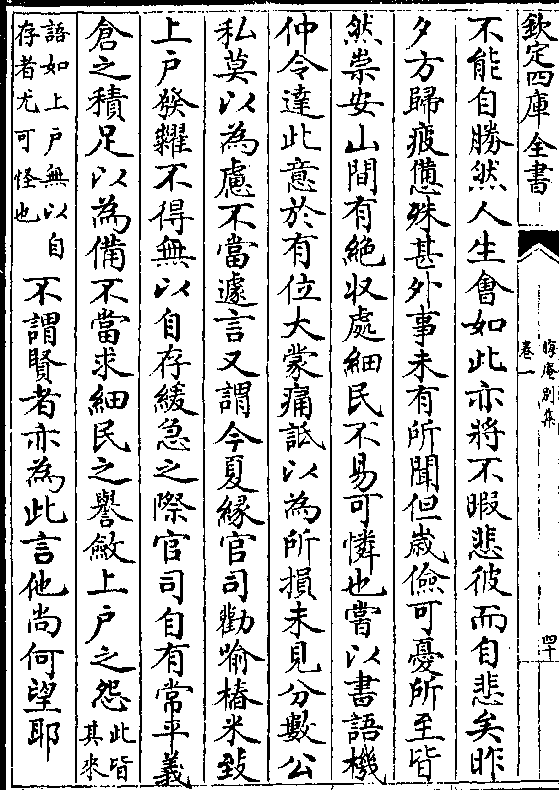 欽定四庫全書
晦庵别集
卷一
四十
不能自勝然人生會如此亦將不暇悲彼而自悲矣昨
夕方歸疲憊殊甚外事未有所聞但歲儉可憂所至皆
然崇安山間有絶収處細民不易可憐也嘗以書語機
仲令達此意於有位大蒙痛詆以為所損未見分數公
私莫以為慮不當遽言又謂今夏緣官司勸喻樁米致
上户發糶不得無以自存緩急之際官司自有常平義
倉之積足以為備不當求細民之譽斂上户之怨此皆其來
語如上户無以自存者尤可怪也不謂賢者亦為此言他尚何望耶